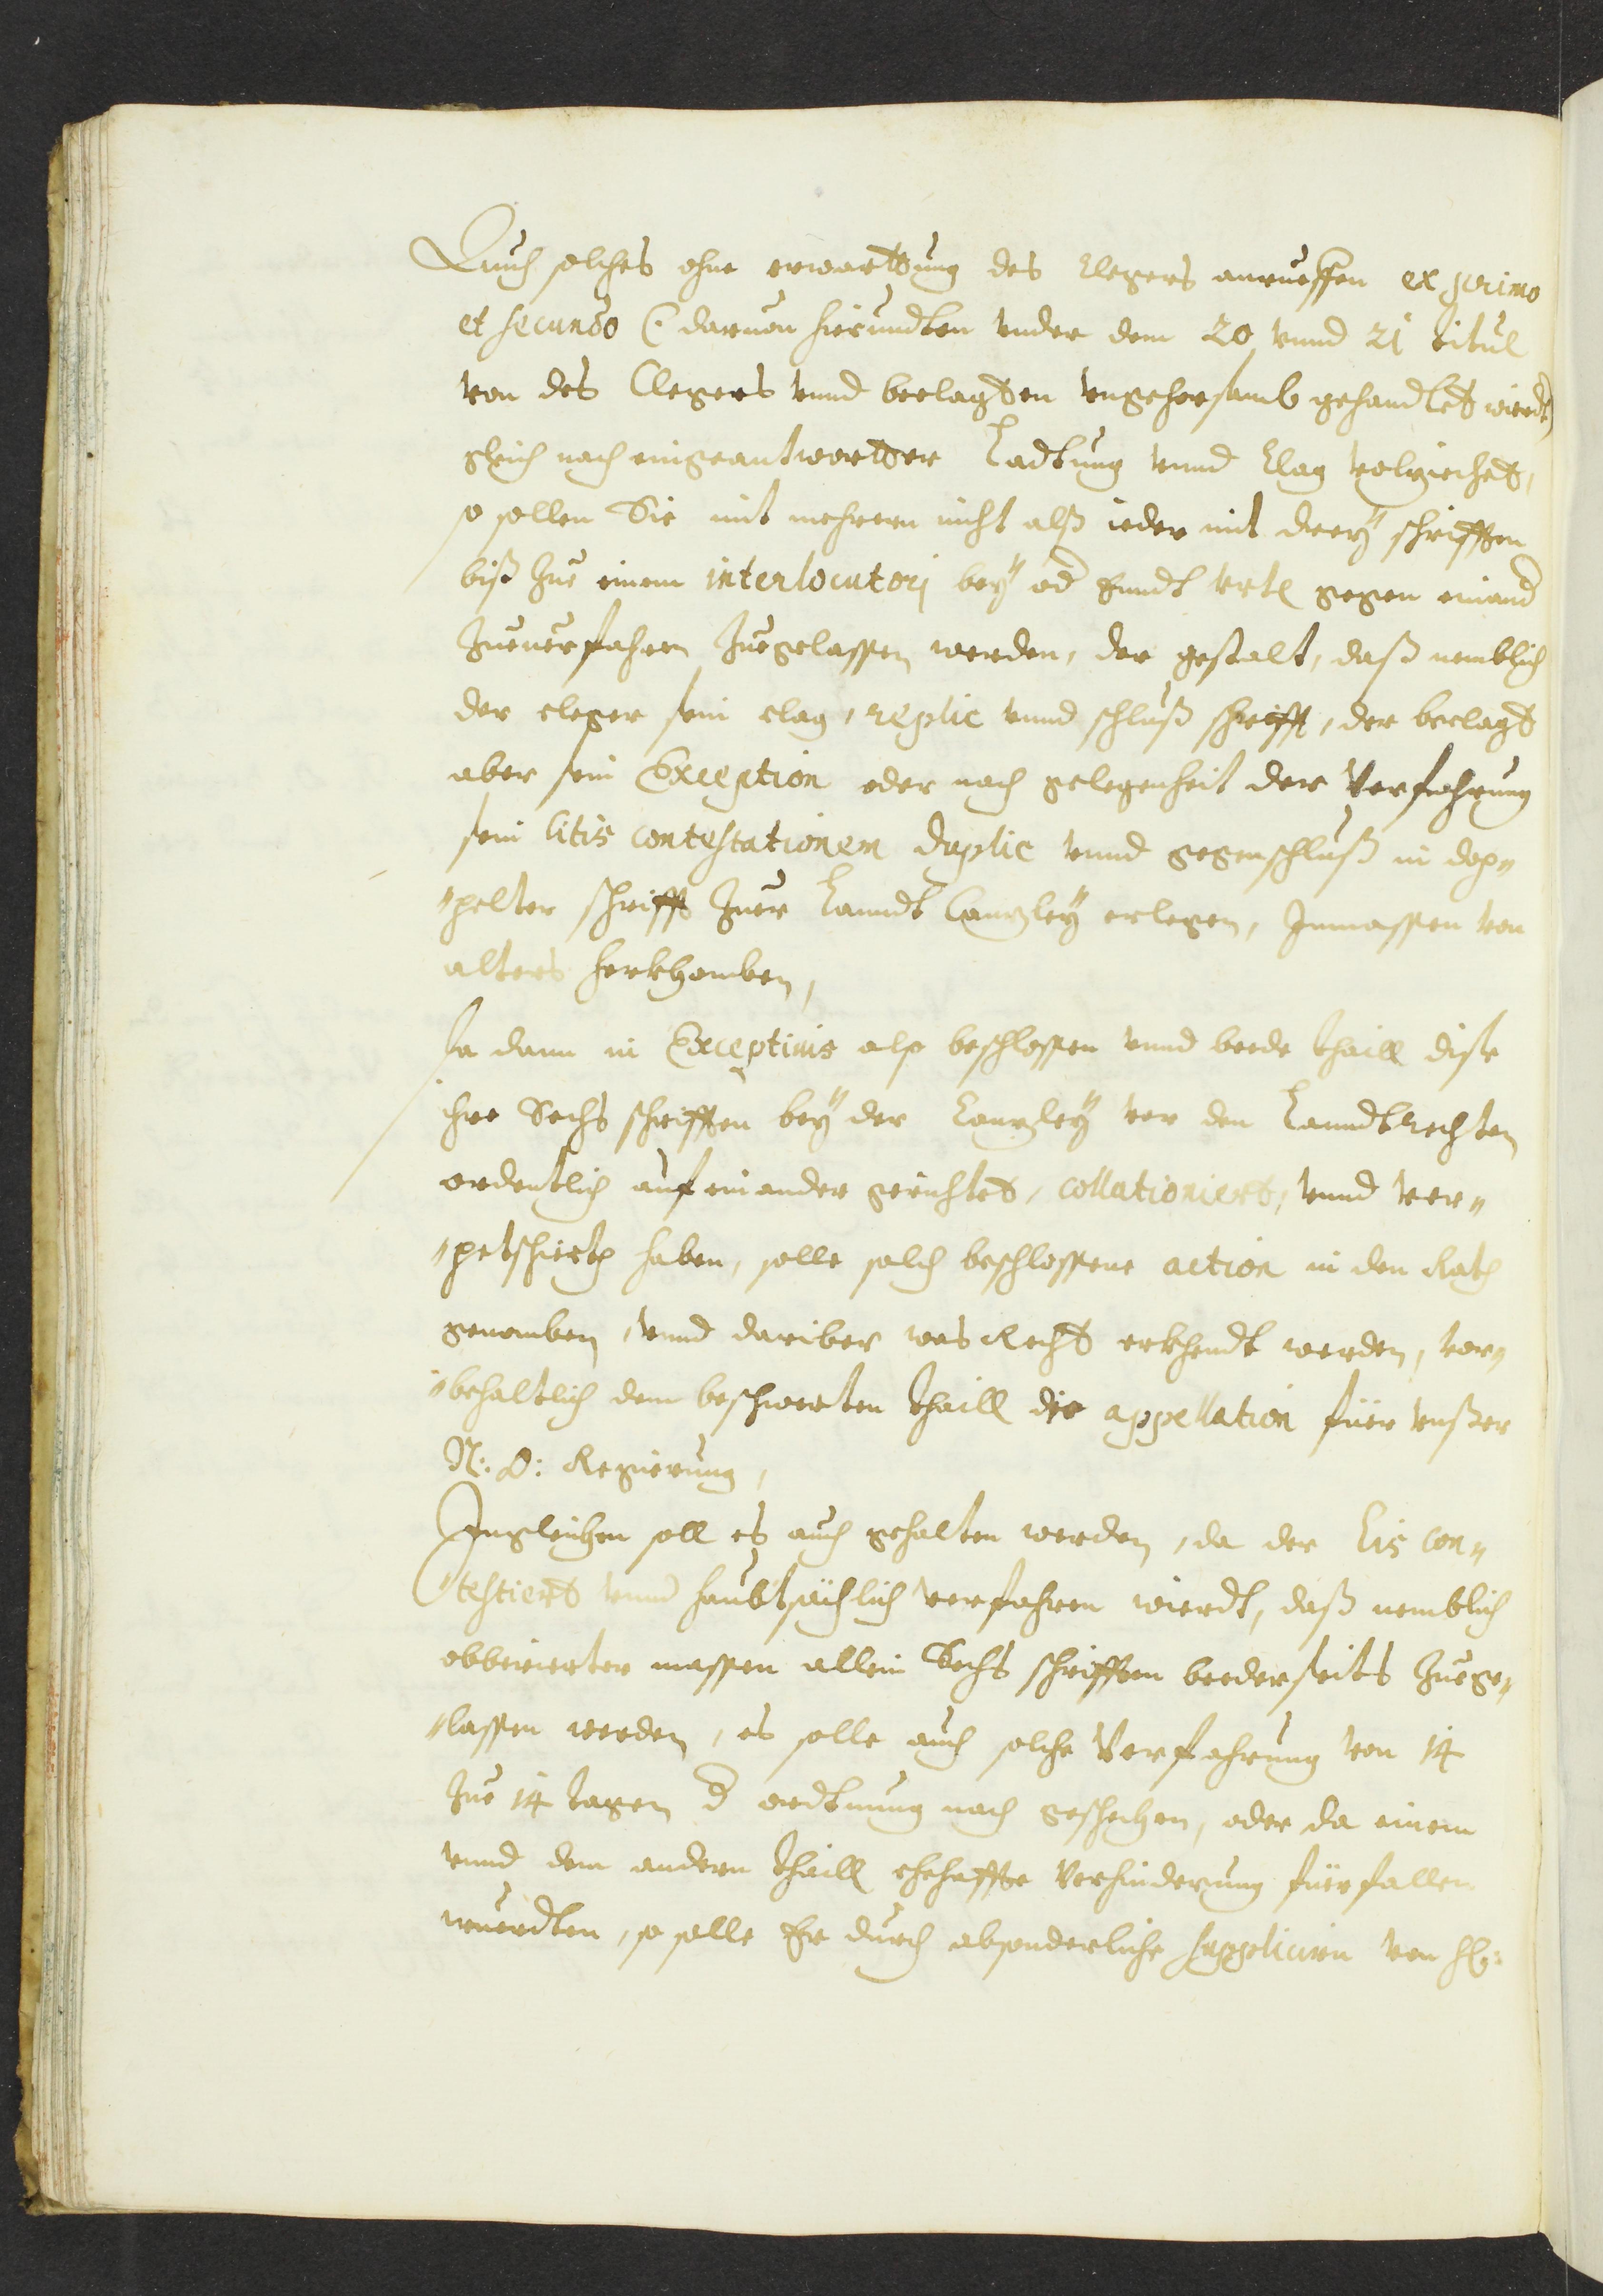 Auch solches ohne erwarttung des Clegers anrueffen ex primo
et secundo (: daruon hierundten under dem 20 vnnd 21 titul
von des Clegers vnnd beclagten vngehorsamb gehandlet wierdt)
gleich nach eingeantwortter Ladtung vnnd Clag volziechet,
so sollen Sie mit mehrern nicht alß ieder mit dreÿ schrifften
biß zue einem interlocutorj beÿ od Enndt vrtl gegen einand
zuuerfahren zuegelassen werden, der gestalt, daß nemblich
der cleger sein clag, replic vnnd schluß schrifft, der beclagt
aber sein Exception oder nach gelegenheit der Verfahrung
sein litis contestationem duplic vnnd gegenschluß in dop„
„pelter schrifft zuer Lanndt Canzleÿ erlegen, Inmassen von
alters herkhomben,
Da dann in Exceptinis also beschlossen vnnd beede thaill dise
ihre Sechs schrifften beÿ der Canzleÿ vor den Lanndtrechten
ordentlich auf einander gerichtet, collationiert, vnnd ver„
„petschiert haben, solle solch beschlossene action in den Rath
genomben, vnnd dariber was Recht erkhendt werden, vor„
„behaltlich dem beschwerten thaill die appellation füer vnßer
N: Ö: Regierung,
Ingleichen soll es auch gehalten werden, da der Lis con„
„testiert vnnd haubtsächlich verfahren wierdt, daß nemblich
obberierter massen allein Sechs schrifften beederseits zuege„
„lassen werden, es solle auch solche Verfahrung von 14
zue 14 tagen d ordtnung nach geschechen, oder da einem
vnnd dem andern thaill ehehaffte Verhinderung füerfallen
wuerdten, so solle Er durch absonderliche suppliciern von